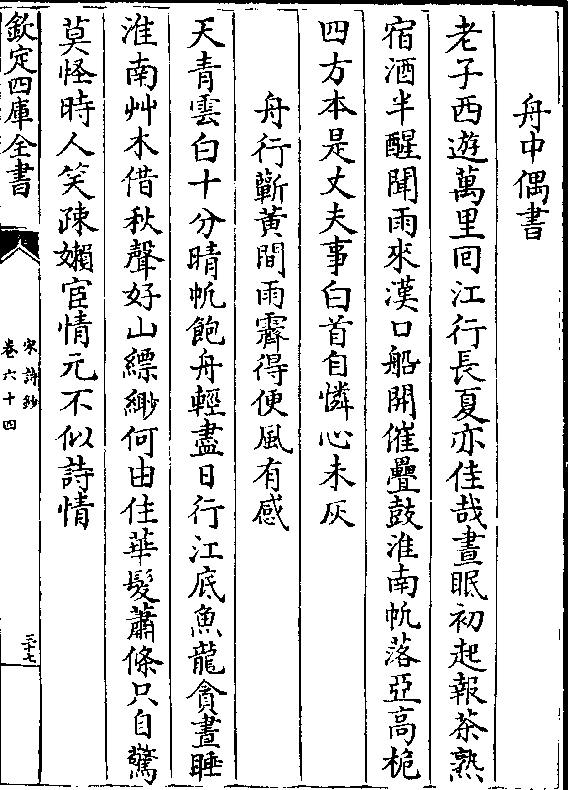 舟中偶書
老子西遊萬里回江行長夏亦佳哉晝眠初起報茶熟
宿酒半醒聞雨來漢口船開催疊鼓淮南帆落亞高桅
四方本是丈夫事白首自憐心未灰
舟行蘄黄間雨霽得便風有感
天青雲白十分晴帆飽舟輕盡日行江底魚龍貪晝睡
淮南艸木借秋聲好山縹緲何由住華髮蕭條只自驚
莫怪時人笑疎嬾宦情元不似詩情
欽定四庫全書
宋詩鈔
卷六十四
三十七